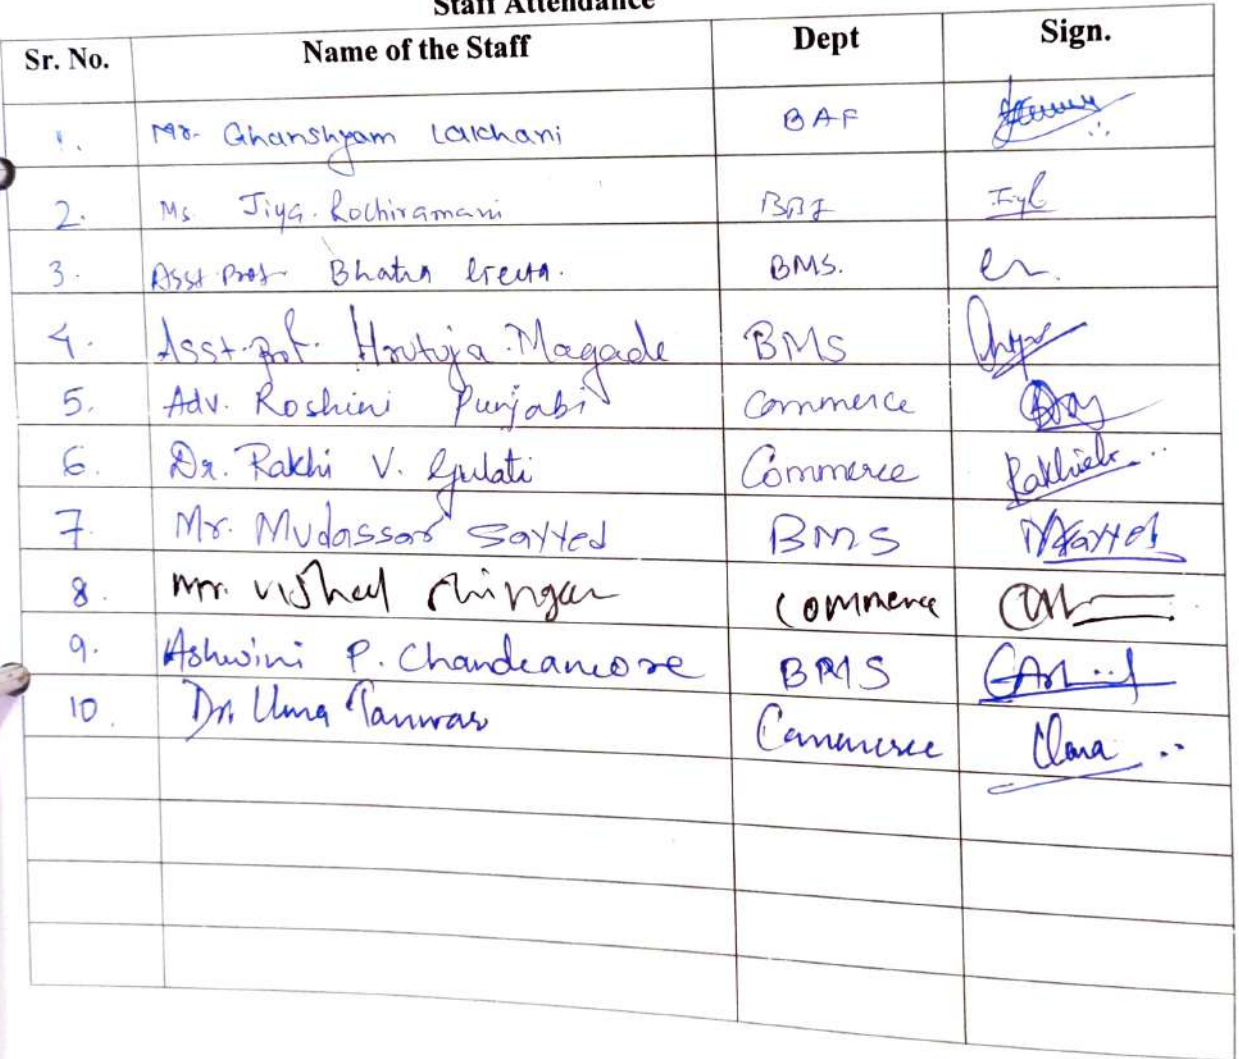 Staff Attendance
Sr. No. Name of the Staff Dept Sign.
1. Mr. Ghanshyam Lalchani BAF
2. Ms. Jiya Rochiramani BBI
3. Asst Prof Bhatia Geeta. BMS.
4. Asst. Prof. Hrutuja Magade BMS
5. Adv. Roshini Punjabi Commerce
6. Dr. Rakhi V. Gulati Commerce
7. Mr. Mudassar Sayyed BMS
8. Mr. Vishal Shingar Commerce
9. Ashwini P. Chandramore BMS
10. Dr. Uma Tanwar Commerce Uma